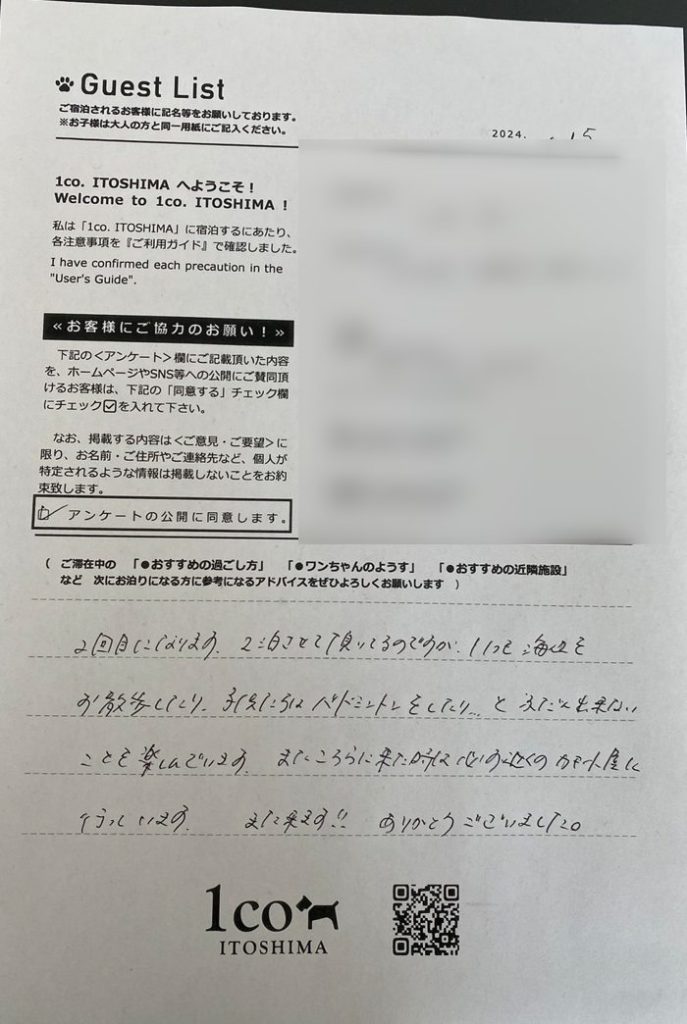 Guest List
ご宿泊されるお客様に記名等をお願いしております。
※お子様は大人の方と同一用紙にご記入ください。
2024. . 15
1co. ITOSHIMA へようこそ！
Welcome to 1co. ITOSHIMA !
私は「1co. ITOSHIMA」に宿泊するにあたり、
各注意事項を『ご利用ガイド』で確認しました。
I have confirmed each precaution in the
"User's Guide".
≪お客様にご協力のお願い！≫
下記の＜アンケート＞欄にご記載頂いた内容
を、ホームページやSNS等への公開にご賛同頂
けるお客様は、下記の「同意する」チェック欄
にチェック☑を入れて下さい。
なお、掲載する内容は＜ご意見・ご要望＞に
限り、お名前・ご住所やご連絡先など、個人が
特定されるような情報は掲載しないことをお約
束致します。
アンケートの公開に同意します。
( ご滞在中の 「●おすすめの過ごし方」 「●ワンちゃんのようす」 「●おすすめの近隣施設」
など 次にお泊りになる方に参考になるアドバイスをぜひよろしくお願いします )
2回目になります。2泊させて頂いてるのですが、いつも海辺を
お散歩したり、子供たちはバドミントンをしたり…と ふだん出来ない
ことを楽しんでいます。またこちらに来た時は必ず近くの
行っています。 また来ます!! ありがとうございました。
1co
ITOSHIMA